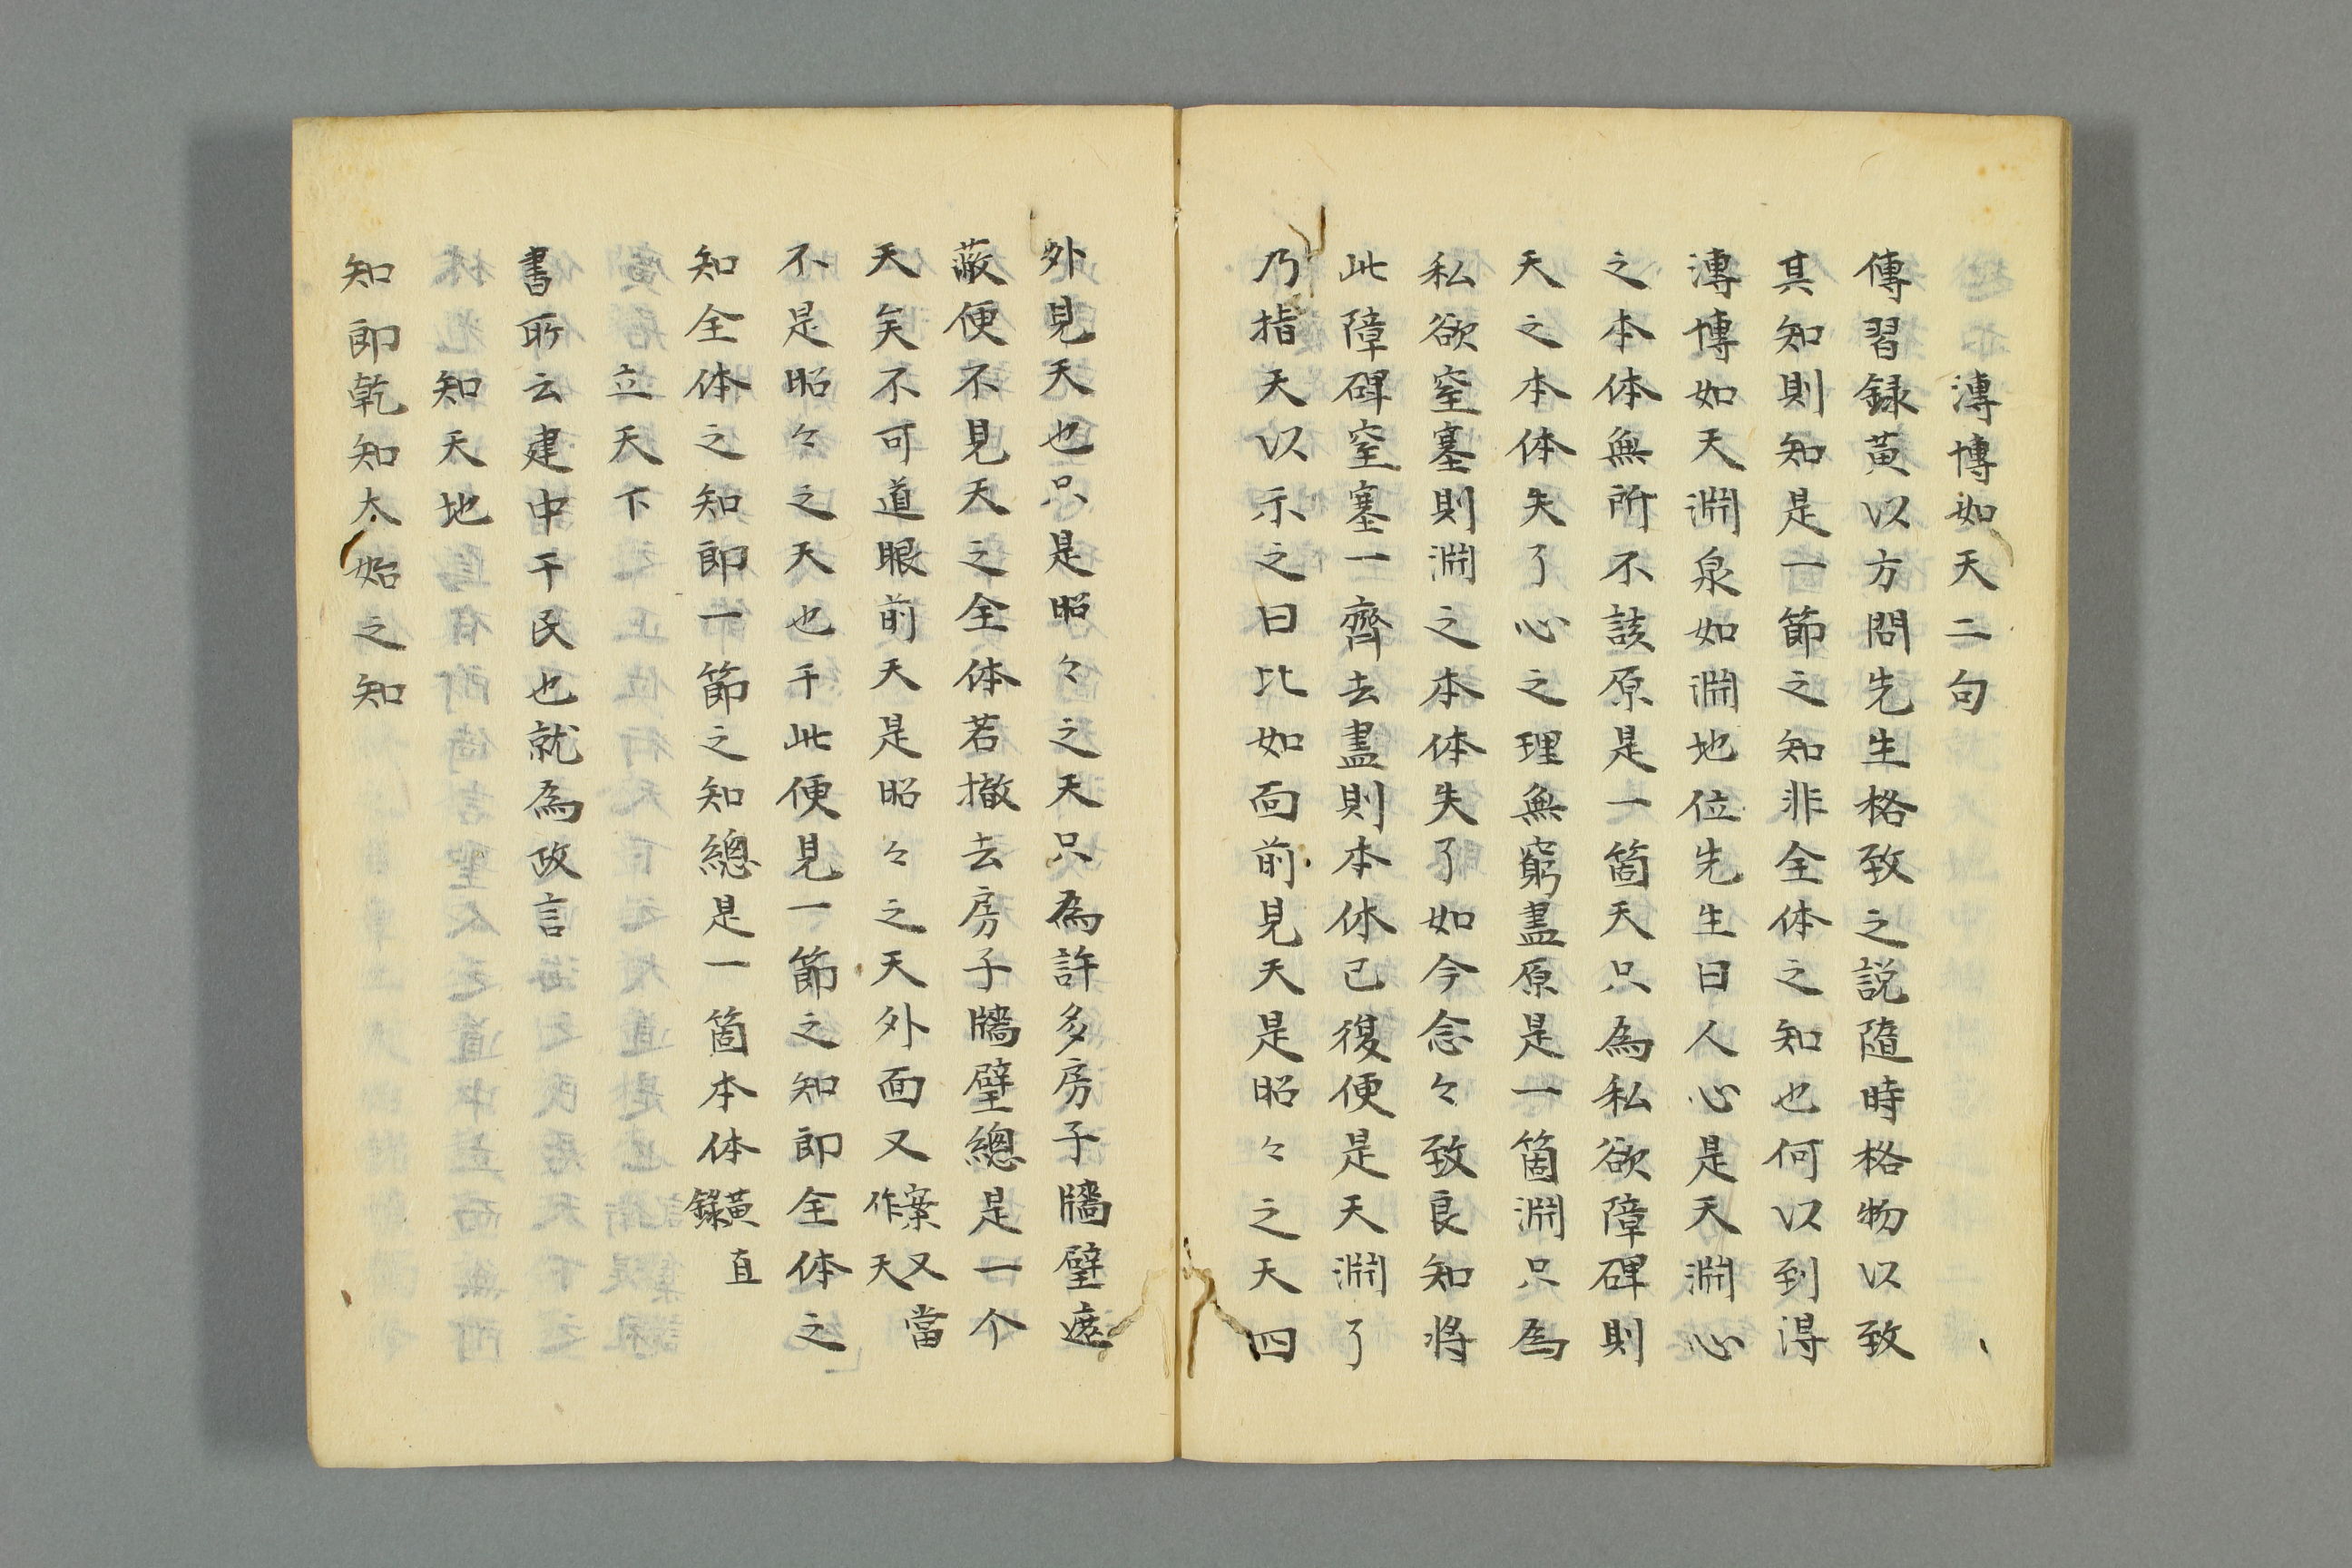 漙博如天二句
傳習録黄以方問先生格致之説隨時格物以致
其知則知是一節之知非全体之知也何以到得
漙博如天淵泉如淵地位先生曰人心是天淵心
之本体無所不該原是一箇天只為私欲障碍則
天之本体失了心之理無窮盡原是一箇淵只為
私欲窒塞則淵之本体失了如今念々致良知将
此障碍窒塞一齊去盡則本体已復便是天淵了
乃指天以示之曰比如面前見天是昭々之天四
外見天也只是昭々之天只為許多房子牆壁遮
蔽便不見天之全体若撤去房子牆壁總是一个
天矣不可道眼前天是昭々之天外面又案又當作天
不是昭々之天也于此便見一節之知即全体之
知全体之知即一節之知總是一箇本体黄直録
立天下
書所云建中于民也就為政言
知天地
知即乾知太始之知